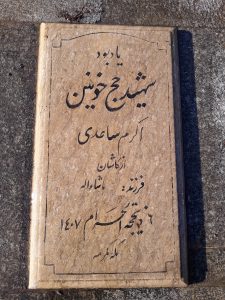 یادبود
شهید حج خونین
اکرم ساعدی
از کاشان
فرزند: ماشاءاله
۶ ذیحجة الحرام ۱۴۰۷
مکه مکرمه